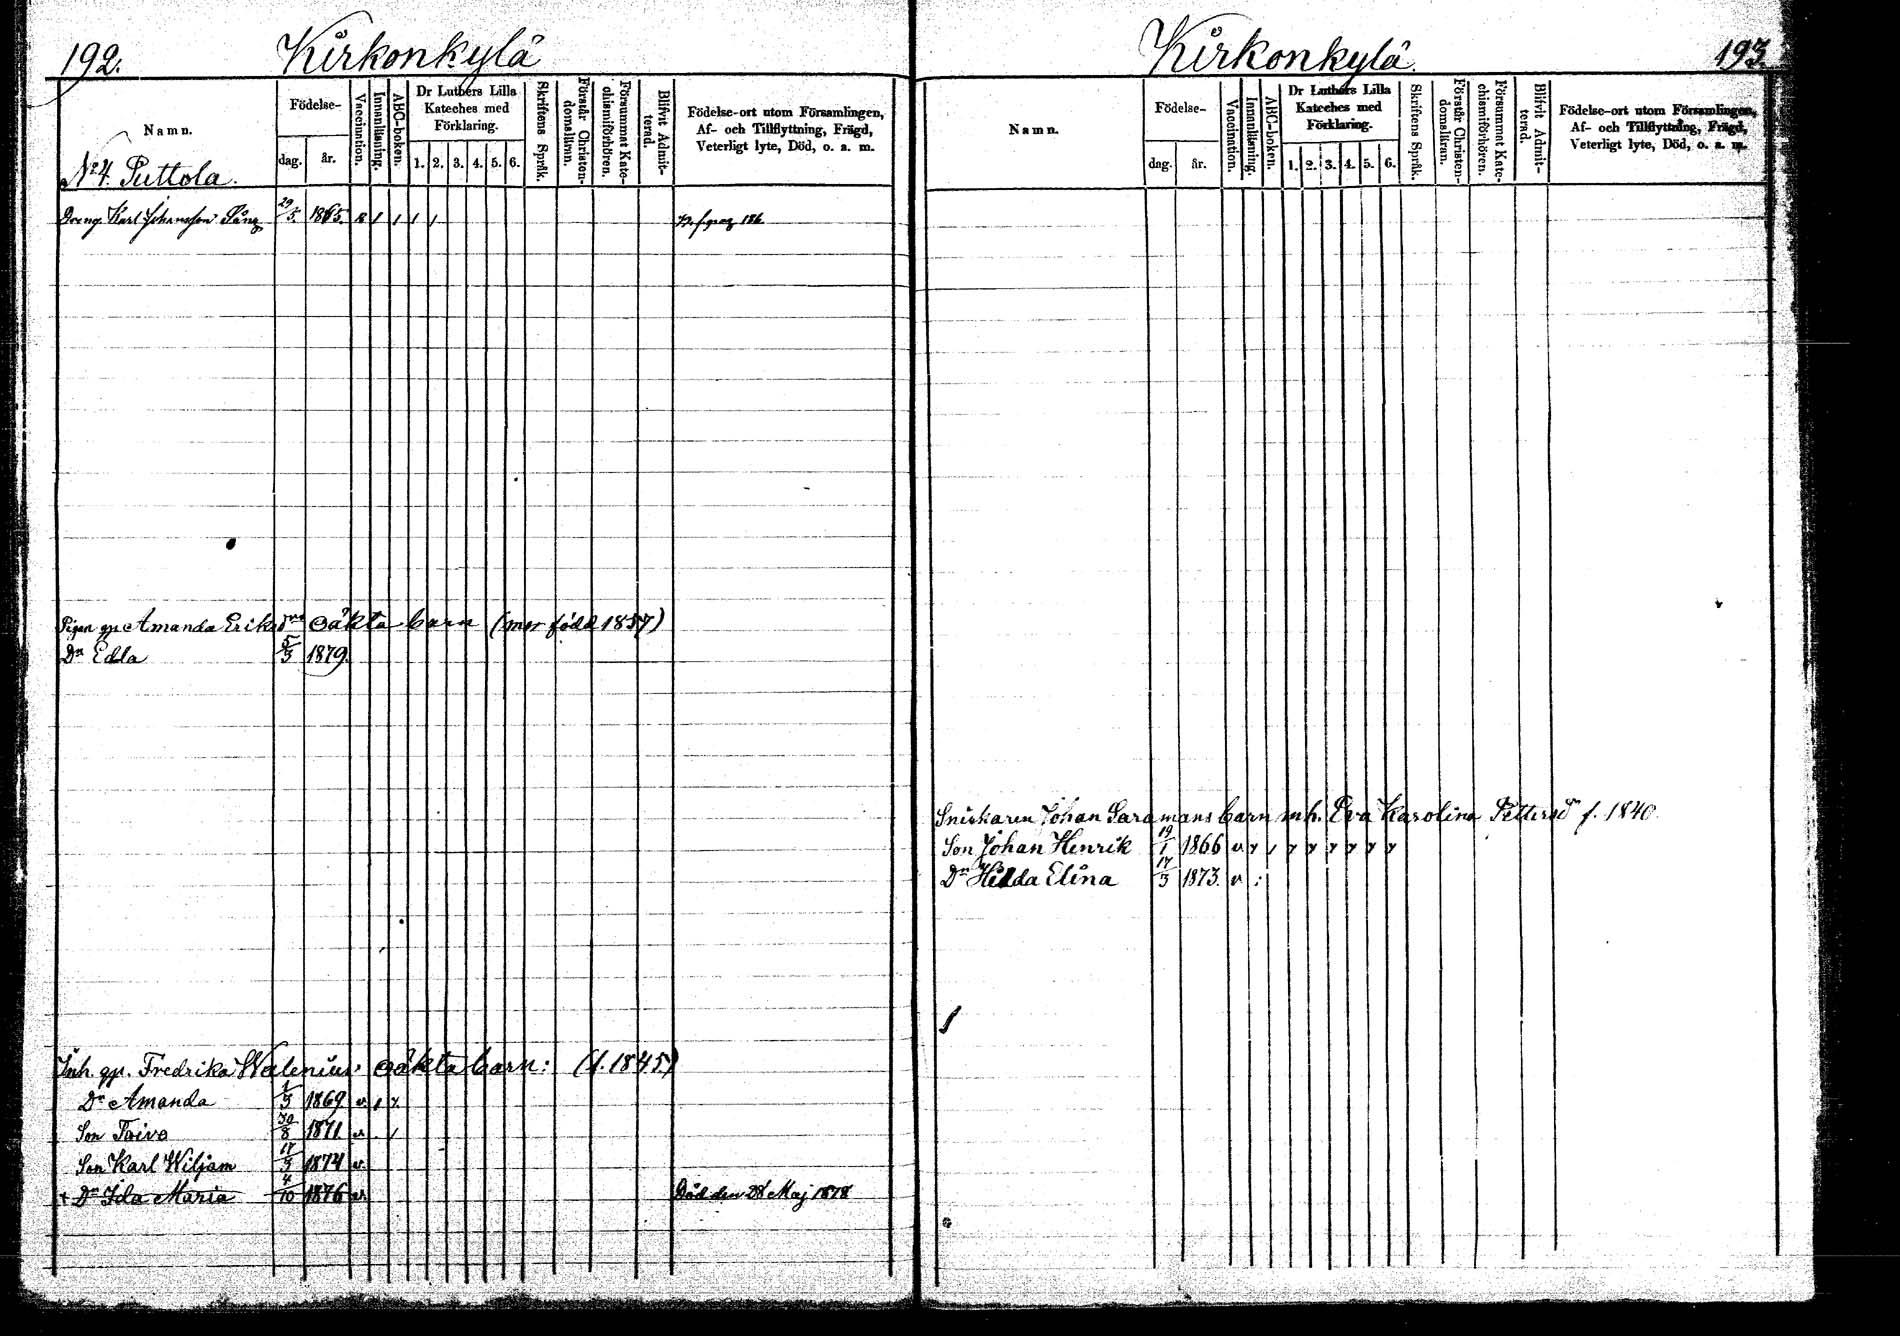 192.
Kirkonkylä
Namn.
Födelse-
dag.
år.
Vaccination.
Innanläsning.
ABC-boken.
Dr Luthers Lilla
Kateches med
Förklaring.
1. 2. 3. 4. 5. 6.
Skriftens Språk.
Förstår Christen-
domsläran.
Försummat Kate-
chismiförhören.
Blifvit Admit-
terad.
Födelse-ort utom Församlingen,
Af- och Tillflyttning, Frägd,
Veterligt lyte, Död, o. a. m.
No 4. Puttola.
Dreng. Karl Johansson 29/5. 1865.
Pigan gp Amanda Eriksdrs oäkta barn (mor född 1857)
Dr Edla 5/3 1879.
Inh. gp. Fredrika Walenius' oäkta barn: (f. 1845)
Dr Amanda 1/3 1869 v.
Son Toivo 30/8 1871 v.
Son Karl Wiljam 17/3 1874 v.
+ Dr Ida Maria 4/10 1876 v. Död den 28 Maj 1878
Kirkonkylä.
193.
Namn.
Födelse-
dag.
år.
Vaccination.
Innanläsning.
ABC-boken.
Dr Luthers Lilla
Kateches med
Förklaring.
1. 2. 3. 4. 5. 6.
Skriftens Språk.
Förstår Christen-
domsläran.
Försummat Kate-
chismiförhören.
Blifvit Admit-
terad.
Födelse-ort utom Församlingen,
Af- och Tillflyttning, Frägd,
Veterligt lyte, Död, o. a. m.
Snickaren Johan Saramans barn mh. Eva Karolina Pettersdr f. 1840.
Son Johan Henrik 19/1 1866 v
Dr Hilda Elina 17/3 1873. v